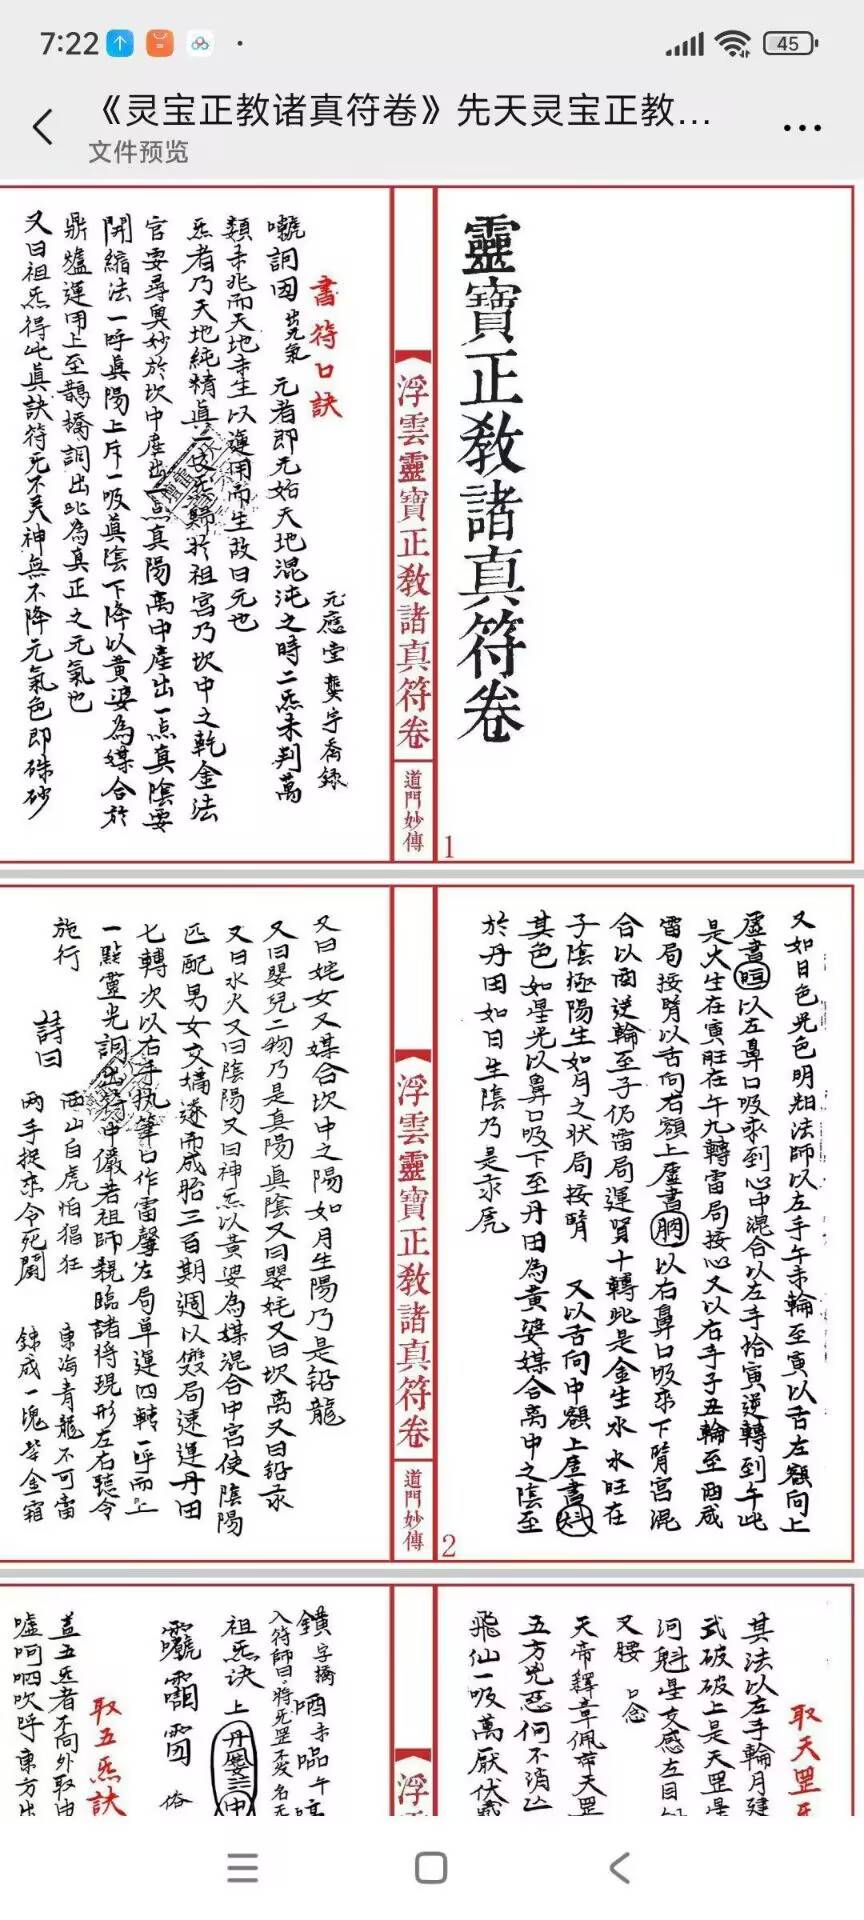 7:22
45
《灵宝正教诸真符卷》先天灵宝正教...
文件预览
靈寶正教諸真符卷
1
浮雲靈寶正教諸真符卷
道門妙傳
書符口訣
元應堂 龔宇齋錄
囐訶図 出元氣 元者即元始天地混沌之時二炁未判萬
類未兆而天地子生以運用而生故曰元也
炁者乃天地純精真一技炁歸於祖宮乃坎中之乾金法
官要尋奥妙於坎中産出一点真陽离中産出一点真陰要
開縮法一呼眞陽上斥一吸眞陰下降以黄婆為媒合於
鼎爐運用上至鵲橋訶出此為真正之元氣也
又曰祖炁得此眞訣符死不灵神無不降元氣色即硃砂
又如日色光色明如法師以左手午未輪至寅以舌左額向上
虚書 以左鼻口吸来到心中混合以左手恰寅逆轉到午此
是火生在寅旺在午九轉雷局接心又以右手子丑輪至酉戌
雷局接腎以舌向右額上虚書 以右鼻口吸来下腎宮混
合以酉逆輪至子仍雷局運質十轉此是金生水水旺在
子陰極陽生如月之狀局接腎 又以舌向中額上虚書
其色如星光以鼻口吸下至丹田為黄婆媒合离中之陰至
於丹田如日生陰乃是汞虎
2
浮雲靈寶正教諸真符卷
道門妙傳
又曰姹女又媒合坎中之陽如月生陽乃是铅龍
又曰嬰兒二物乃是真陽真陰又曰嬰姹又曰坎离又曰铅汞
又曰水火又曰陰陽又曰神炁以黄婆為媒混合中宮使陰陽
匹配男女交媾遂而成胎三百期週以雙局速運丹田
七轉次以右手执筆口作雷聲左局单運四轉一呼而上
一點靈光訶出符中儼若祖師親臨諸將現形左右聽令
施行
詩曰
西山白虎怕猖狂 東海青龍不可當
两手捉来令死鬭 錬成一塊紫金霜
取天罡炁
其法以左手輪月建
式破破上是天罡是
河魁星交感左目
又腰 口念
天帝釋章佩帶天罡
五方兇惡何不消亡
飛仙一吸萬厭伏藏
浮
鐄字擒 唒未 嗂午
入符師曰将炁罡不交名无
祖炁訣上
俗
取五炁訣
蓋五炁者不向外取由
嘘呵呬吹呼東方出